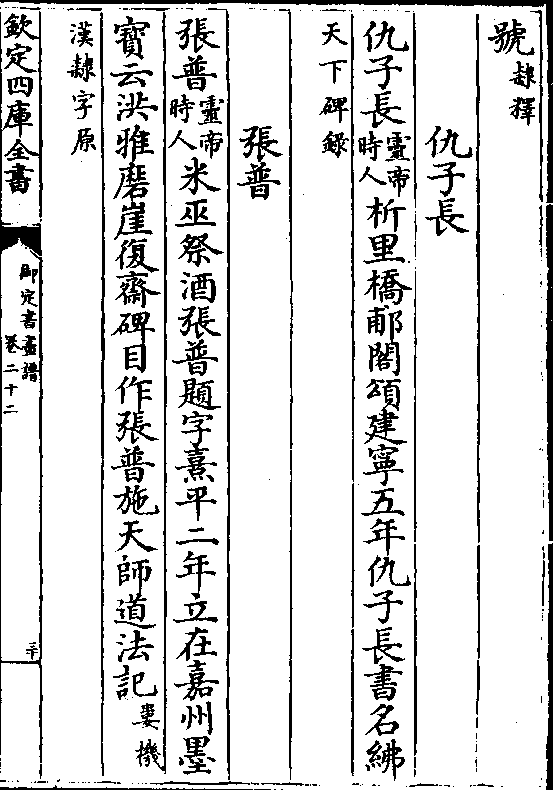 號隸釋
仇子長
仇子長靈帝時人析里橋郙閣頌建寧五年仇子長書名紼
天下碑錄
張普
張普靈帝時人米巫祭酒張普題字熹平二年立在嘉州墨
寶云洪雅磨崖復齋碑目作張普施天師道法記婁機
漢隸字原
欽定四庫全書
御定書畫譜
卷二十二
二十